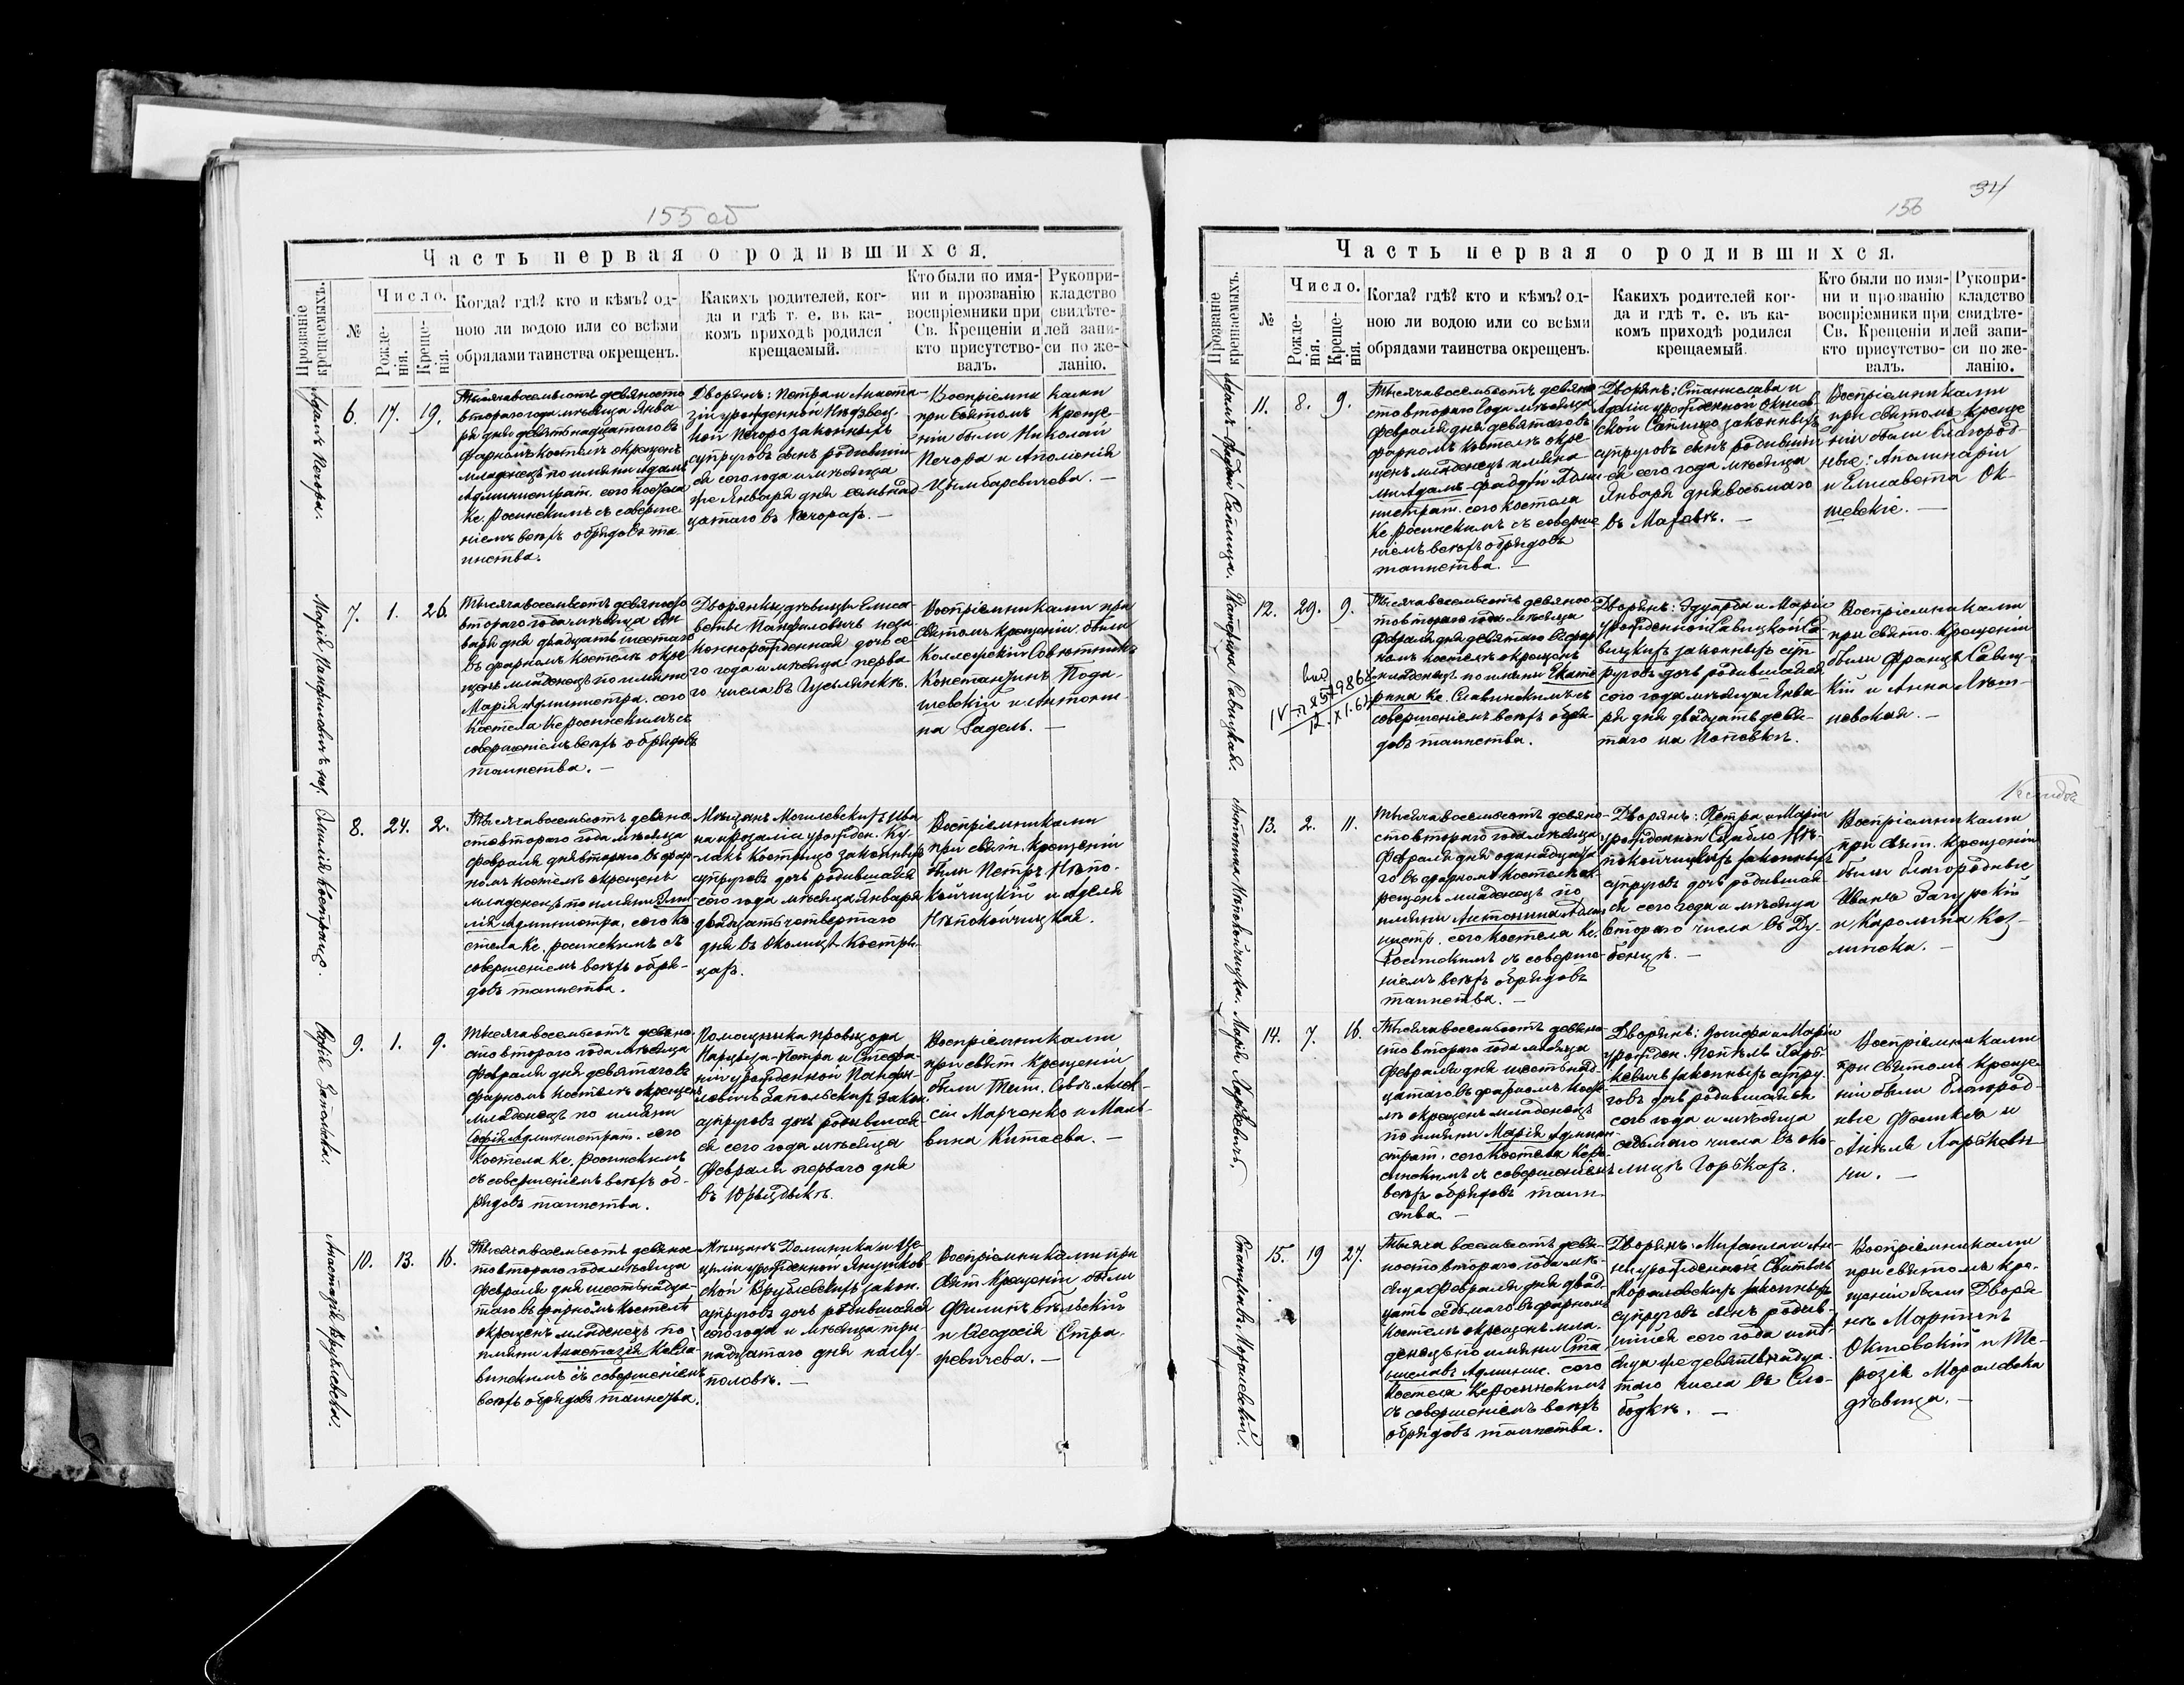 155 об
Часть первая о родившихся.
Прозваніе крещаемыхъ.
№
Число.
Рожде-
нія.
Креще-
нія.
Когда? гдѣ? кто и кѣмъ? од-
ною ли водою или со всѣми
обрядами таинства окрещенъ.
Какихъ родителей, ког-
да и гдѣ т. е. въ ка-
комъ приходѣ родился
крещаемый.
Кто были по имя-
ни и прозванію
воспріемники при
Св. Крещеніи и
кто присутство-
валъ.
Рукопри-
кладство
свидѣте-
лей запи-
си по же-
ланію.
Адамъ Печора.
6. 17. 19.
Тысяча восемьсотъ девяносто
втораго года мѣсяца Янва
ря дня девятнадцатаго въ
фарномъ костелѣ окрещенъ
младенецъ по имяни Адамъ
Администрат. сего костела
Кс. Росинскимъ съ соверше
ніемъ всѣхъ обрядовъ та
инства.
Дворянъ: Петра и Анаста
зіи урожденной
Печоро законныхъ
супруговъ сынъ родивший
ся сего года и мѣсяца
же Января дня семьнад
цатаго въ Печорахъ. —
Воспріемниками
при Святомъ Креще
ніи были Николай
Печора и Аполонія
Цимбаревичева. —
Марія Панфиловичъ нез.
7. 1. 26.
Тысяча восемьсотъ девяносто
втораго года мѣсяца Ян
варя дня двадцать шестаго
въ фарномъ костелѣ окре
щенъ младенецъ по имяни
Марія Администра. сего
костела Кс Росинскимъ съ
совершеніемъ всѣхъ обрядовъ
таинства. —
Дворянки дѣвицы Елиса
веты Панфиловичъ неза
коннорожденная дочь се
го года и мѣсяца перва
го числа въ Гуслянкѣ.
Воспріемниками при
Святомъ Крещеніи были
Коллежскій Совѣтникъ
Константинъ Пода-
шевскій и Антони-
на Гадель. —
Эмилія Кострицо.
8. 24. 2.
Тысяча восемьсотъ девяно
сто втораго года мѣсяца
Февраля дня втораго въ фар
номъ костелѣ окрещенъ
младенецъ по имяни Эми
лія Администра. сего ко
стела Кс. Росинскимъ съ
совершеніемъ всѣхъ обря-
довъ таинства.
Мѣщанъ Могилевскихъ Ива
на и Розаліи урожден. Ку-
лакъ Кострицо законныхъ
супруговъ дочь родившаяся
сего года мѣсяца Января
двадцать четвертаго
дня въ околицѣ Костри
цахъ.
Воспріемниками
при свят. Крещеніи
были Петръ Нѣпо-
койчицкій и Аделя
Нѣпокойчицкая.
Софія Запольска.
9. 1. 9.
Тысяча восемьсотъ девяно-
сто втораго года мѣсяца
Февраля дня девятаго въ
фарномъ костелѣ окрещенъ
младенецъ по имяни
Софія Администрат. сего
костела Кс. Росинскимъ
съ совершеніемъ всѣхъ об-
рядовъ таинства.
Помощника провизора
Нарциза-Петра и Стефа-
ніи урожденной Панфи-
ловичъ Запольскихъ закон.
супруговъ дочь родившая
ся сего года мѣсяца
Февраля перваго дня
въ Юрыздыкѣ.
Воспріемниками
при свят Крещеніи
были Тит. Совѣ. Алек-
сій Марченко и Маль-
вина Китаева. —
Анастазія Врублевска.
10. 13. 16.
Тысяча восемьсотъ девянос
то втораго года мѣсяца
Февраля дня шестьнадца-
таго въ фарномъ костелѣ
окрещенъ младенецъ по
имяни Анастазія Кс Сла-
винскимъ съ совершеніемъ
всѣхъ обрядовъ таинства.
Мѣщанъ Доминика и Це-
циліи урожденной Янушков
ской Врублевскихъ закон.
супруговъ дочь родившаяся
сего года и мѣсяца три-
надцатаго дня на Лу-
половѣ. —
Воспріемниками при
Свят Крещеніи были
Филипъ Бѣльскій
и Феодосія Стра-
жевичева. —
34
156
Часть первая о родившихся.
Прозваніе крещаемыхъ.
№
Число.
Рожде-
нія.
Креще-
нія.
Когда? гдѣ? кто и кѣмъ? од-
ною ли водою или со всѣми
обрядами таинства окрещенъ.
Какихъ родителей ког-
да и гдѣ т. е. въ ка-
комъ приходѣ родился
крещаемый.
Кто были по имя-
ни и прозванію
воспріемники при
Св. Крещеніи и
кто присутство-
валъ.
Рукопри-
кладство
свидѣте-
лей запи-
си по же-
ланію.
Адамъ Фаддей Сапицо.
11. 8. 9.
Тысяча восемьсотъ девяно
сто втораго года мѣсяца
Февраля дня девятаго въ
фарномъ костелѣ окре
щенъ младенецъ имяна
ми Адамъ-Фаддей Адми
нистрат. сего костела
Кс Росинскимъ съ соверше
ніемъ всѣхъ обрядовъ
таинства. —
Дворянъ: Станислава и
Аделіи урожденной Окшев
ской Сапицо законныхъ
супруговъ сынъ родивший
ся сего года мѣсяца
Января дня восьмаго
въ —
Воспріемниками
при святомъ Креще
ніи были благород
ные: Аполинарій
и Елисавета Ок-
шевскіе. —
Катерина Савицкая.
12. 29. 9.
Тысяча восемьсотъ девянос
то втораго года мѣсяца
Февраля дня девятаго въ фар
номъ костелѣ окрещенъ
младенецъ по имяни Екате
рина Кс. Славинскимъ съ
совершеніемъ всѣхъ обря-
довъ таинства.
IV-
12. XI.61
Дворянъ: Эдуарда и Маріи
урожденной Савицкой Са-
вицкихъ законныхъ суп
руговъ дочь родившаяся
сего года мѣсяца Янва
ря дня двадцать девя-
таго на Поповкѣ.
Воспріемниками
при свято. Крещеніи
были Францъ Савиц-
кій и Анна
новская. —
Антонина Нѣпокойчицка.
13. 2. 11.
Тысяча восемьсотъ девяно-
сто втораго года мѣсяца
Февраля дня одинадцата
го въ фарномъ костелѣ ок-
рещенъ младенецъ по
имяни Антонина Админ
нистр. сего костела Кс.
Росинскимъ съ соверше-
ніемъ всѣхъ обрядовъ
таинства. —
Дворянъ: Петра и Маріи
урожденной Нѣ-
покойчицкихъ законныхъ
супруговъ дочь родившая
ся сего года и мѣсяца
втораго числа въ Ду-
бенцѣ. —
Воспріемниками
при свят. Крещеніи
были благородные
Иванъ Загурскій
и Каролина Коз-
линска. —
Марія Харкевичъ.
14. 7. 16.
Тысяча восемьсотъ девяно-
сто втораго года мѣсяца
Февраля дня шестьнад-
цатаго въ фарномъ косте
лѣ окрещенъ младенецъ
по имяни Марія Админи-
страт. сего костела Кс Ро-
синскимъ съ совершеніемъ
всѣхъ обрядовъ таин-
ства. —
Дворянъ: Іосифа и Маріи
урожден. Попелъ Харь-
кевичъ законныхъ супру-
говъ дочь родившаяся
сего года и мѣсяца
седьмаго числа въ око-
лицѣ Горбкахъ.
Воспріемниками
при Святомъ Креще-
ніи были благород-
ные Феликсъ и
Анеля Харькеви
чи. —
Станиславъ Моралевскій.
15. 19 27.
Тысяча восемьсотъ девя-
носто втораго года мѣ-
сяца Февраля дня двад-
цать седьмаго въ фарномъ
костелѣ окрещенъ мла-
денецъ по имяни Ста
ниславъ Админис. сего
костела Кс Росинскимъ
съ совершеніемъ всѣхъ
обрядовъ таинства.
Дворянъ: Михаила и Ан-
ны урожденной
Моралевскихъ законныхъ
супруговъ сынъ родив-
шійся сего года и мѣ-
сяца же девятьнадца-
таго числа въ Сло-
бодкѣ. —
Воспріемниками
при святомъ Кре-
щеніи были Дворя
не Мартинъ
Октовскій и Те-
розія Моралевска
дѣвица. —